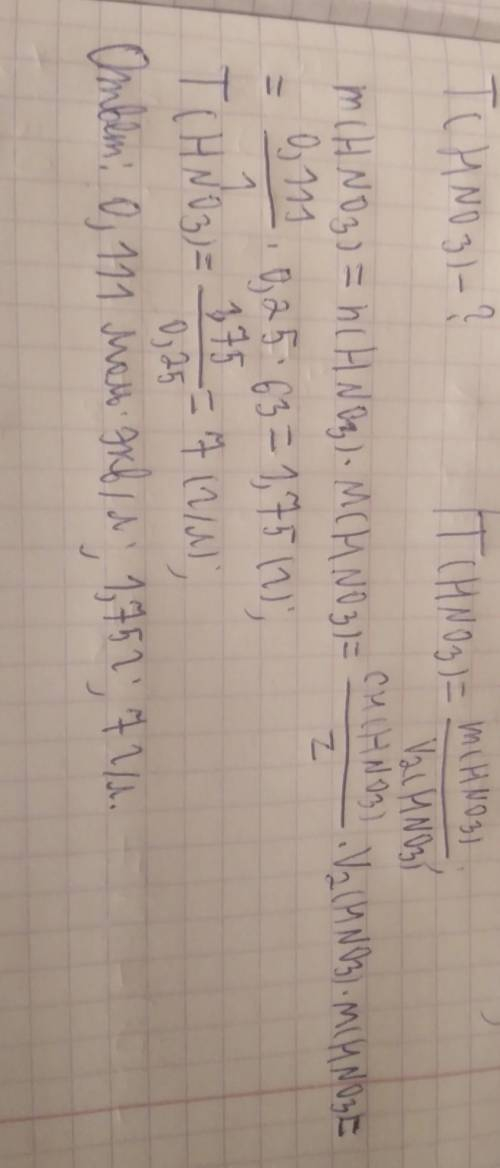 T(HNO3) - ?
T(HNO3) = m(HNO3) / V2(HNO3);
m(HNO3) = n(HNO3) · M(HNO3) = CH(HNO3) / Z · V2(HNO3) · M(HNO3) =
= 0,111 / 1 · 0,25 · 63 = 1,75 (г);
T(HNO3) = 1,75 / 0,25 = 7 (г/л);
Ответ: 0,111 моль·экв/л; 1,75 г; 7 г/л.